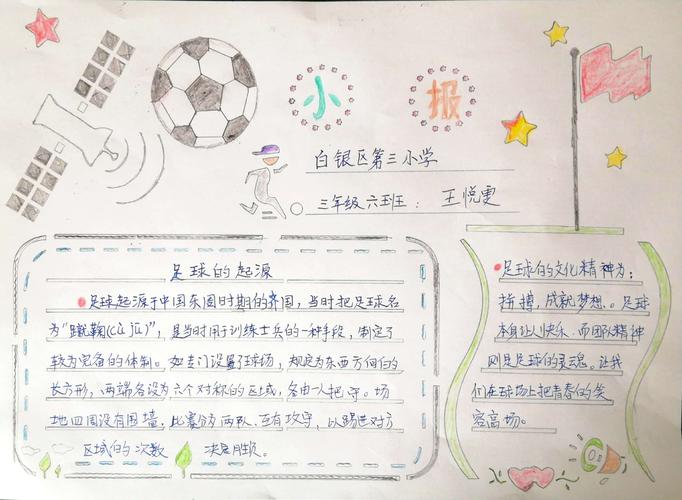 小报
白银区第三小学
三年级六班： 王悦雯
足球的起源
足球起源于中国东周时期的齐国，当时把足球名
为“蹴鞠(cù jū)”，是当时用于训练士兵的一种手段，制定了
较为完备的体制。如专门设置了球场，规定为东西方向的
长方形，两端各设为六个对称的区域，各由一人把守。场
地四周没有围墙，比赛分为两队，互有攻守，以踢进对方
区域的次数 决定胜负。
足球的文化精神为：
拼搏，成就梦想。足球
本身让人快乐，而团队精神
则是足球的灵魂。让我
们在球场上把青春的笑
容高扬。